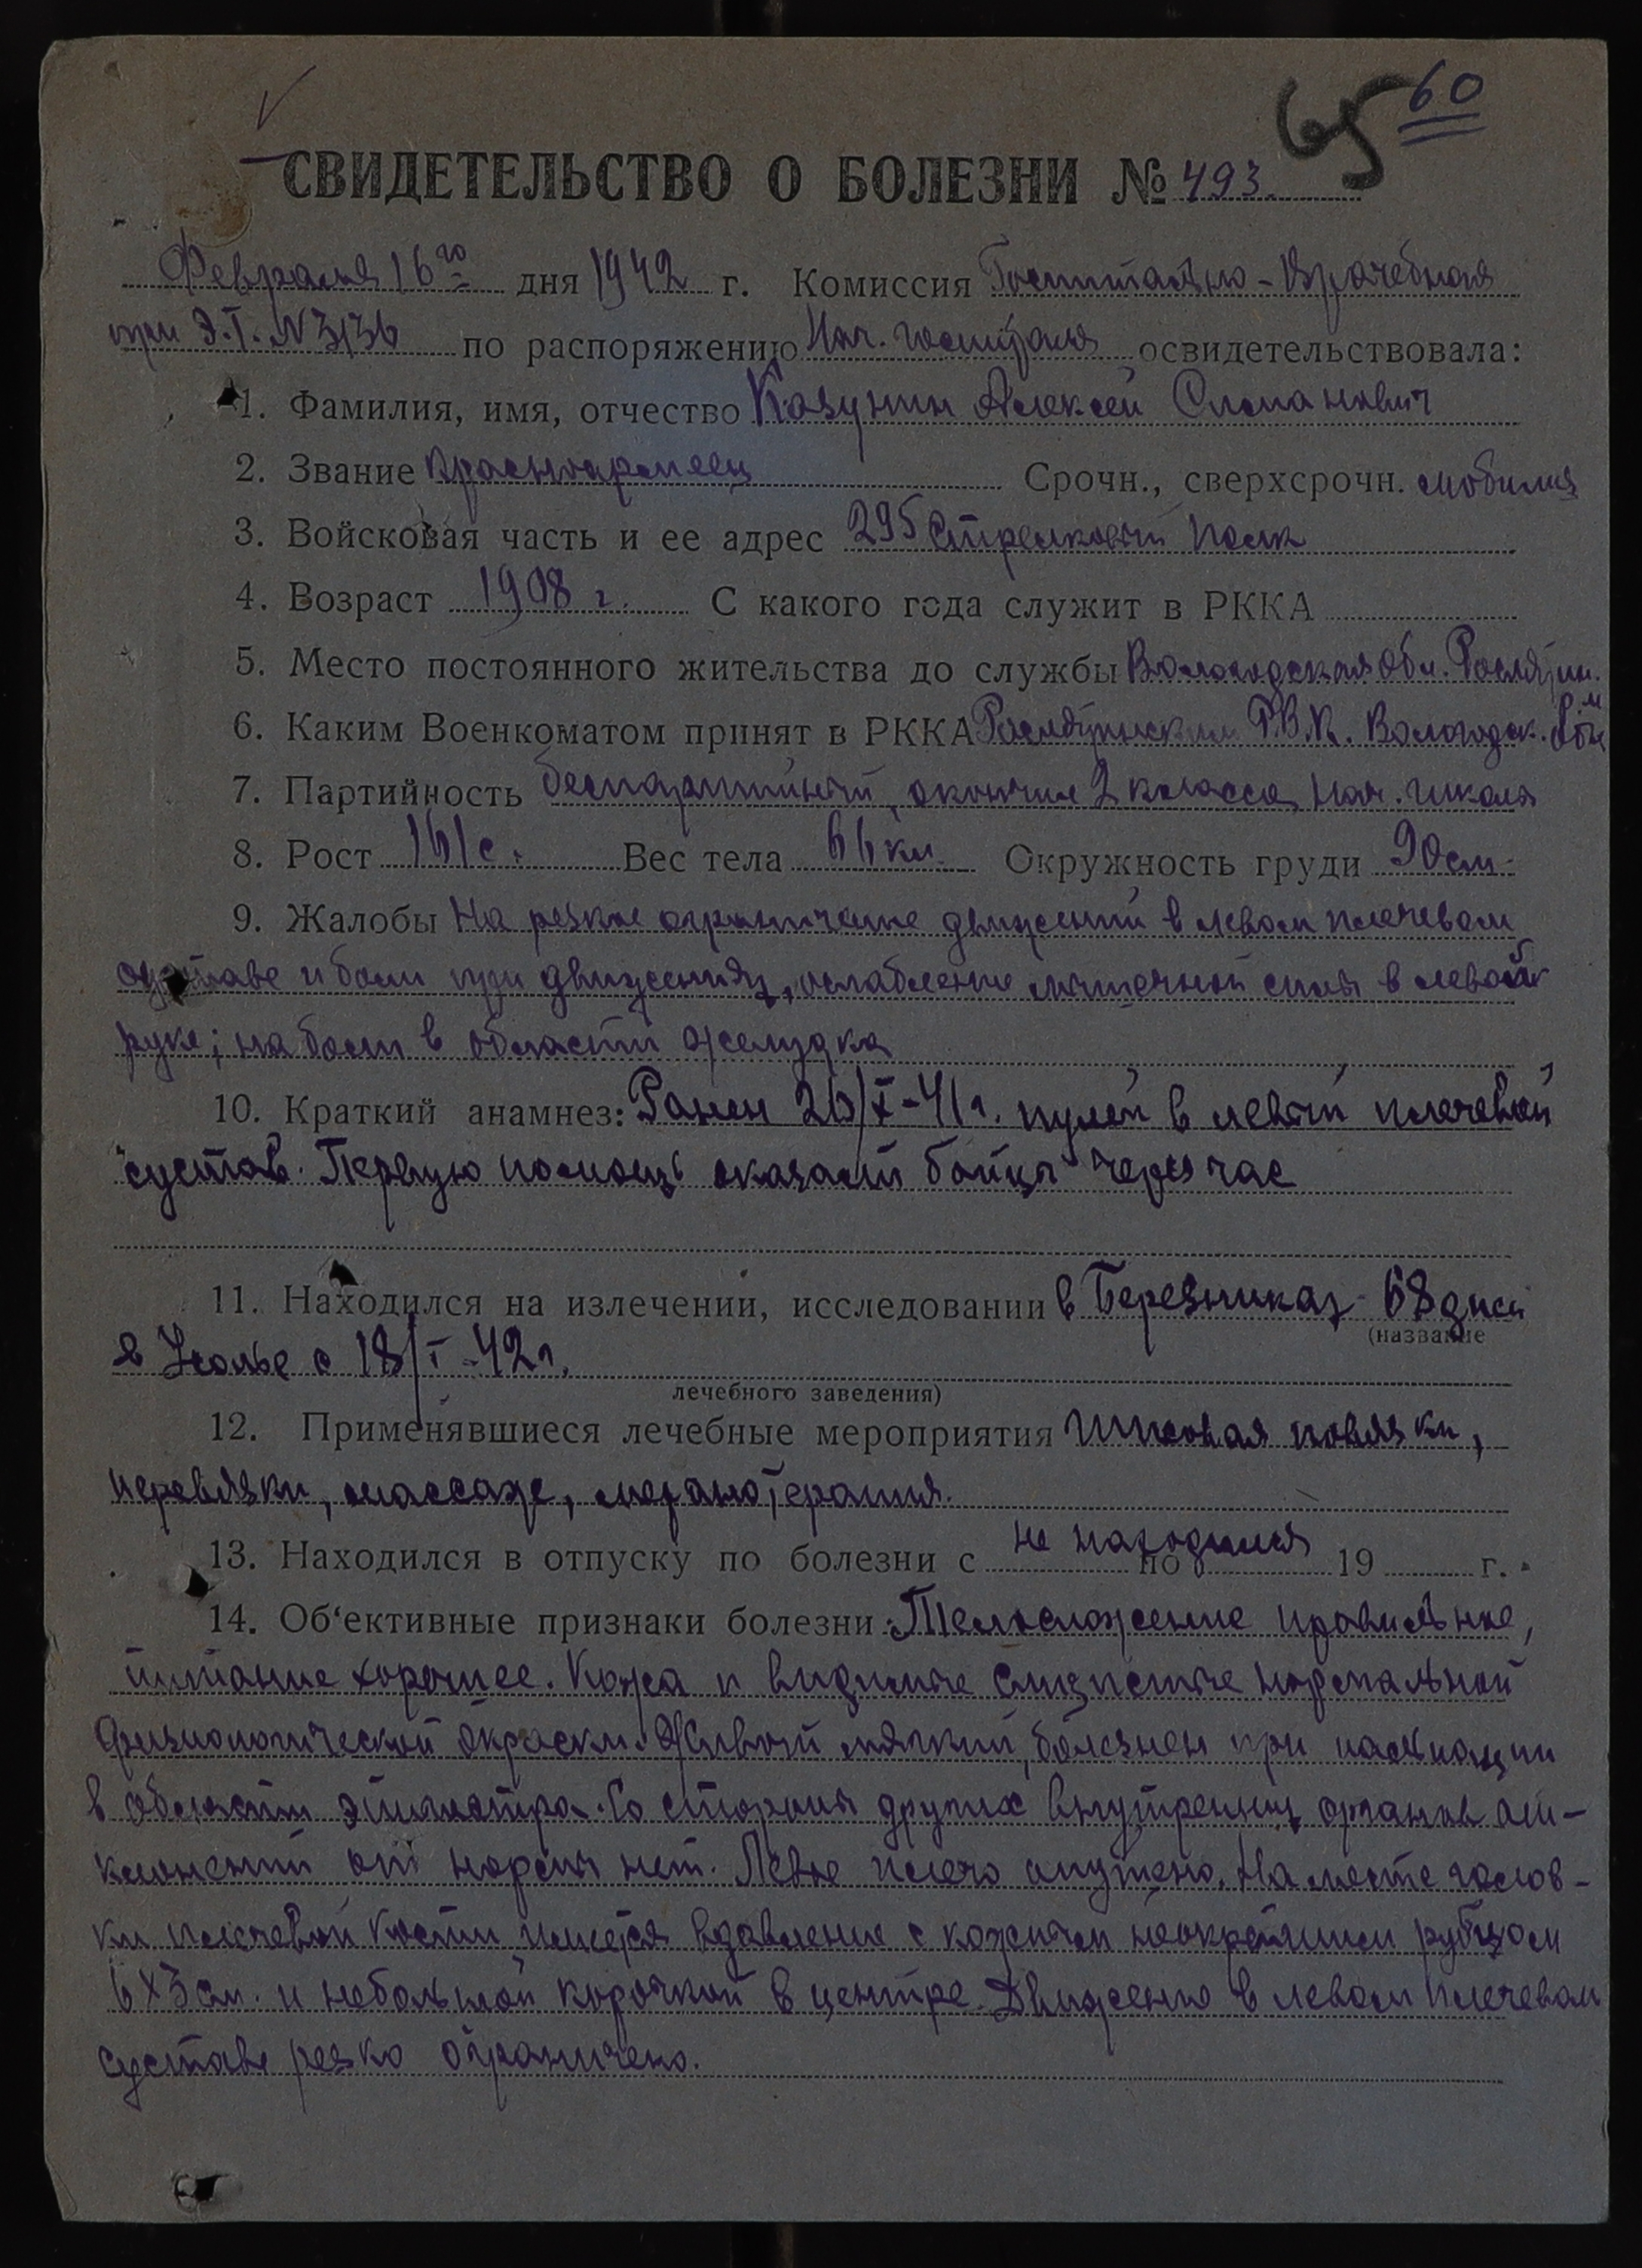 65 60
СВИДЕТЕЛЬСТВО О БОЛЕЗНИ № 493.
Февраля 16го дня 1942 г. Комиссия Госпитально-Врачебная
при Э.Г. № 3136 по распоряжению Нач. госпиталя освидетельствовала:
1. Фамилия, имя, отчество Казунин Алексей
2. Звание Красноармеец Срочн., сверхсрочн. мобилиз
3. Войсковая часть и ее адрес 295 Стрелковый Полк
4. Возраст 1908 г. С какого года служит в РККА
5. Место постоянного жительства до службы Вологодская Обл. Рослятин.
6. Каким Военкоматом принят в РККА Рослятинским Р.В.К. Вологодск. обл
7. Партийность беспартийный, окончил 2 класса нач. школы
8. Рост 161 с. Вес тела 66 кил. Окружность груди 90 см.
9. Жалобы На резкое ограничение движений в левом плечевом
суставе и боли при движениях, ослабление мышечной силы в левой
руке; на боли в области желудка
10. Краткий анамнез: Ранен 26/X-41г. пулей в левый плечевой
сустав. Первую помощь оказали бойцы через час
11. Находился на излечении, исследовании в Березниках 68 дней
(название
в Усолье с 18/I-42г.
лечебного заведения)
12. Применявшиеся лечебные мероприятия Гипсовая повязки,
перевязки, массаж, механотерапия.
13. Находился в отпуску по болезни с не находился по 19 г.
14. Об'ективные признаки болезни: Телосложение правильное,
питание хорошее. Кожа и видимые слизистые нормальной
физиологической окраски. Живот мягкий, болезнен при пальпации
в области эпигастра. Со стороны других внутренних органов от-
клонений от нормы нет. Левое плечо опущено. На месте голов-
ки плечевой кости имеется вдавление с кожным неокрепшим рубцом
6х3 см. и небольшой корочкой в центре. Движение в левом плечевом
суставе резко ограничено.